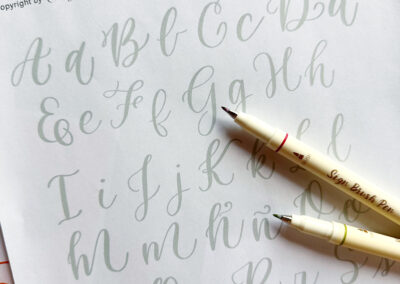 opyright by
A a B b C c D d
E e F f G g H h
I i J j K k L l
M m N n Ñ ñ O o
P R S s
Sign Brush Pen